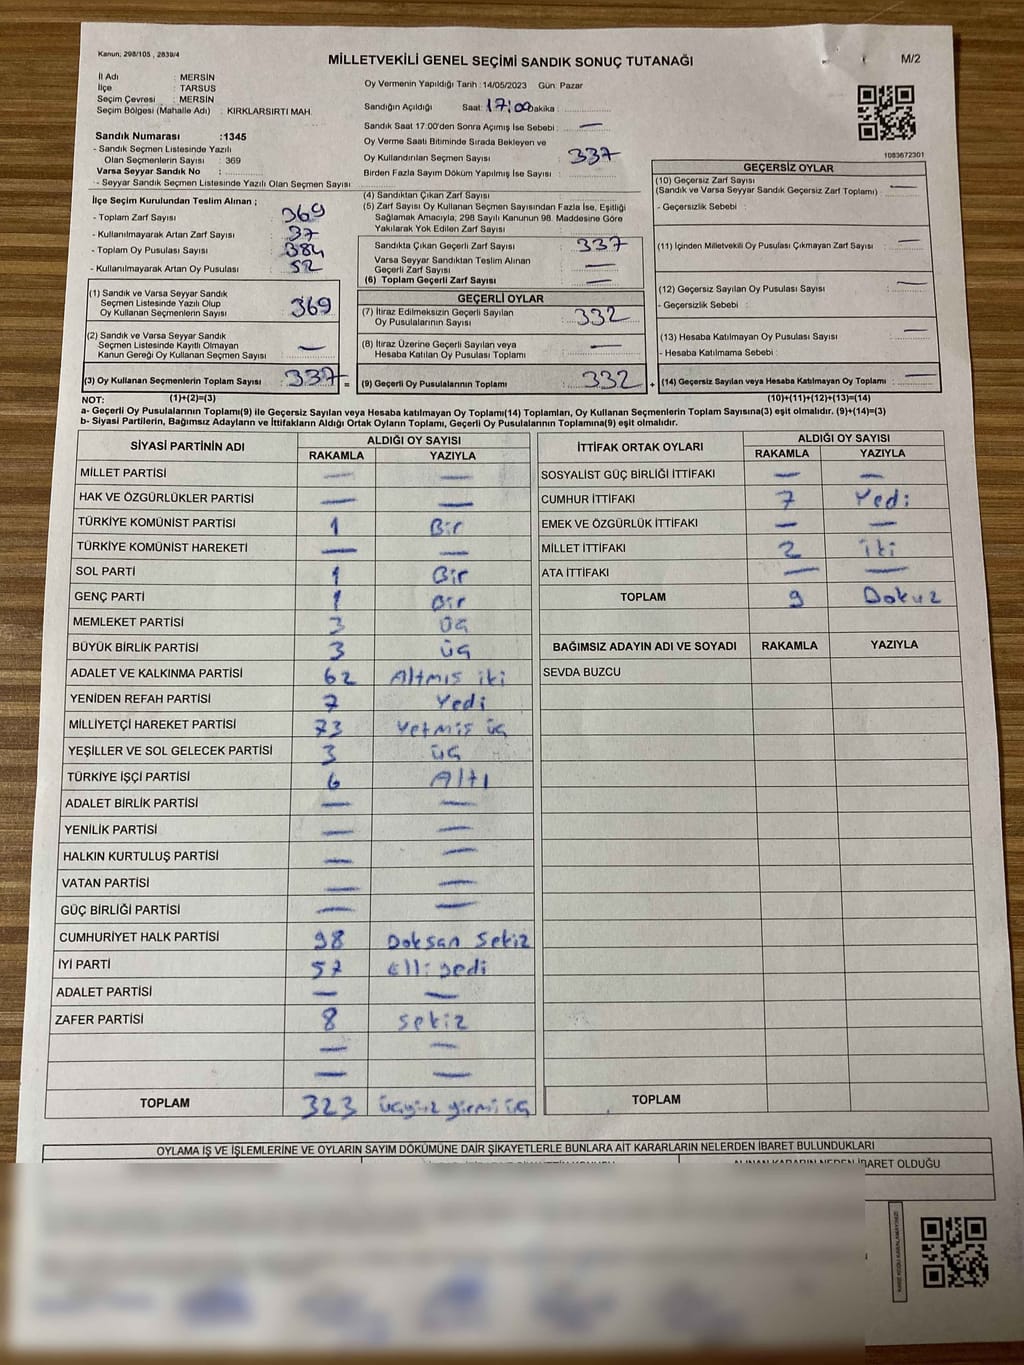 Kanun; 298/105 , 2839/4
MİLLETVEKİLİ GENEL SEÇİMİ SANDIK SONUÇ TUTANAĞI
M/2
İl Adı : MERSİN
İlçe : TARSUS
Seçim Çevresi : MERSİN
Seçim Bölgesi (Mahalle Adı) : KIRKLARSIRTI MAH.
Oy Vermenin Yapıldığı Tarih : 14/05/2023 Gün: Pazar
Sandığın Açıldığı Saat: 17:00 Dakika :
Sandık Saat 17.00'den Sonra Açımış İse Sebebi : —
Oy Verme Saati Bitiminde Sırada Bekleyen ve
Oy Kullandırılan Seçmen Sayısı : 337
Birden Fazla Sayım Döküm Yapılmış İse Sayısı :
Sandık Numarası :1345
- Sandık Seçmen Listesinde Yazılı
Olan Seçmenlerin Sayısı : 369
Varsa Seyyar Sandık No :
- Seyyar Sandık Seçmen Listesinde Yazılı Olan Seçmen Sayısı
1083672301
İlçe Seçim Kurulundan Teslim Alınan ;
- Toplam Zarf Sayısı : 369
- Kullanılmayarak Artan Zarf Sayısı : 37
- Toplam Oy Pusulası Sayısı : 384
- Kullanılmayarak Artan Oy Pusulası : 52
(1) Sandık ve Varsa Seyyar Sandık
Seçmen Listesinde Yazılı Olup
Oy Kullanan Seçmenlerin Sayısı : 369
(2) Sandık ve Varsa Seyyar Sandık
Seçmen Listesinde Kayıtlı Olmayan
Kanun Gereği Oy Kullanan Seçmen Sayısı : —
(3) Oy Kullanan Seçmenlerin Toplam Sayısı : 337 =
(4) Sandıktan Çıkan Zarf Sayısı :
(5) Zarf Sayısı Oy Kullanan Seçmen Sayısından Fazla İse, Eşitliği
Sağlamak Amacıyla, 298 Sayılı Kanunun 98. Maddesine Göre
Yakılarak Yok Edilen Zarf Sayısı :
Sandıkta Çıkan Geçerli Zarf Sayısı : 337
Varsa Seyyar Sandıktan Teslim Alınan
Geçerli Zarf Sayısı : —
(6) Toplam Geçerli Zarf Sayısı : —
GEÇERLİ OYLAR
(7) İtiraz Edilmeksizin Geçerli Sayılan
Oy Pusulalarının Sayısı : 332
(8) İtiraz Üzerine Geçerli Sayılan veya
Hesaba Katılan Oy Pusulası Toplamı : —
(9) Geçerli Oy Pusulalarının Toplamı : 332 +
GEÇERSİZ OYLAR
(10) Geçersiz Zarf Sayısı
(Sandık ve Varsa Seyyar Sandık Geçersiz Zarf Toplamı) : —
- Geçersizlik Sebebi :
(11) İçinden Milletvekili Oy Pusulası Çıkmayan Zarf Sayısı : —
(12) Geçersiz Sayılan Oy Pusulası Sayısı : —
- Geçersizlik Sebebi :
(13) Hesaba Katılmayan Oy Pusulası Sayısı : —
- Hesaba Katılmama Sebebi :
(14) Geçersiz Sayılan veya Hesaba Katılmayan Oy Pusulası Toplamı : —
NOT: (1)+(2)=(3) (10)+(11)+(12)+(13)=(14)
a- Geçerli Oy Pusulalarının Toplamı(9) ile Geçersiz Sayılan veya Hesaba katılmayan Oy Toplamı(14) Toplamları, Oy Kullanan Seçmenlerin Toplam Sayısına(3) eşit olmalıdır. (9)+(14)=(3)
b- Siyasi Partilerin, Bağımsız Adayların ve İttifakların Aldığı Ortak Oyların Toplamı, Geçerli Oy Pusulalarının Toplamına(9) eşit olmalıdır.
SİYASİ PARTİNİN ADI ALDIĞI OY SAYISI
RAKAMLA YAZIYLA
MİLLET PARTİSİ — —
HAK VE ÖZGÜRLÜKLER PARTİSİ — —
TÜRKİYE KOMÜNİST PARTİSİ 1 Bir
TÜRKİYE KOMÜNİST HAREKETİ — —
SOL PARTİ 1 Bir
GENÇ PARTİ 1 Bir
MEMLEKET PARTİSİ 3 üç
BÜYÜK BİRLİK PARTİSİ 3 üç
ADALET VE KALKINMA PARTİSİ 62 Altmış iki
YENİDEN REFAH PARTİSİ 7 Yedi
MİLLİYETÇİ HAREKET PARTİSİ 73 Yetmiş üç
YEŞİLLER VE SOL GELECEK PARTİSİ 3 üç
TÜRKİYE İŞÇİ PARTİSİ 6 Altı
ADALET BİRLİK PARTİSİ — —
YENİLİK PARTİSİ — —
HALKIN KURTULUŞ PARTİSİ — —
VATAN PARTİSİ — —
GÜÇ BİRLİĞİ PARTİSİ — —
CUMHURİYET HALK PARTİSİ 98 Doksan Sekiz
İYİ PARTİ 57 elli yedi
ADALET PARTİSİ — —
ZAFER PARTİSİ 8 sekiz
— —
— —
TOPLAM 323 üçyüz yirmi üç
İTTİFAK ORTAK OYLARI ALDIĞI OY SAYISI
RAKAMLA YAZIYLA
SOSYALİST GÜÇ BİRLİĞİ İTTİFAKI — —
CUMHUR İTTİFAKI 7 Yedi
EMEK VE ÖZGÜRLÜK İTTİFAKI — —
MİLLET İTTİFAKI 2 iki
ATA İTTİFAKI — —
TOPLAM 9 Dokuz
BAĞIMSIZ ADAYIN ADI VE SOYADI RAKAMLA YAZIYLA
SEVDA BUZCU
TOPLAM
OYLAMA İŞ VE İŞLEMLERİNE VE OYLARIN SAYIM DÖKÜMÜNE DAİR ŞİKAYETLERLE BUNLARA AİT KARARLARIN NELERDEN İBARET BULUNDUKLARI
ALINAN KARARIN NEDEN İBARET OLDUĞU